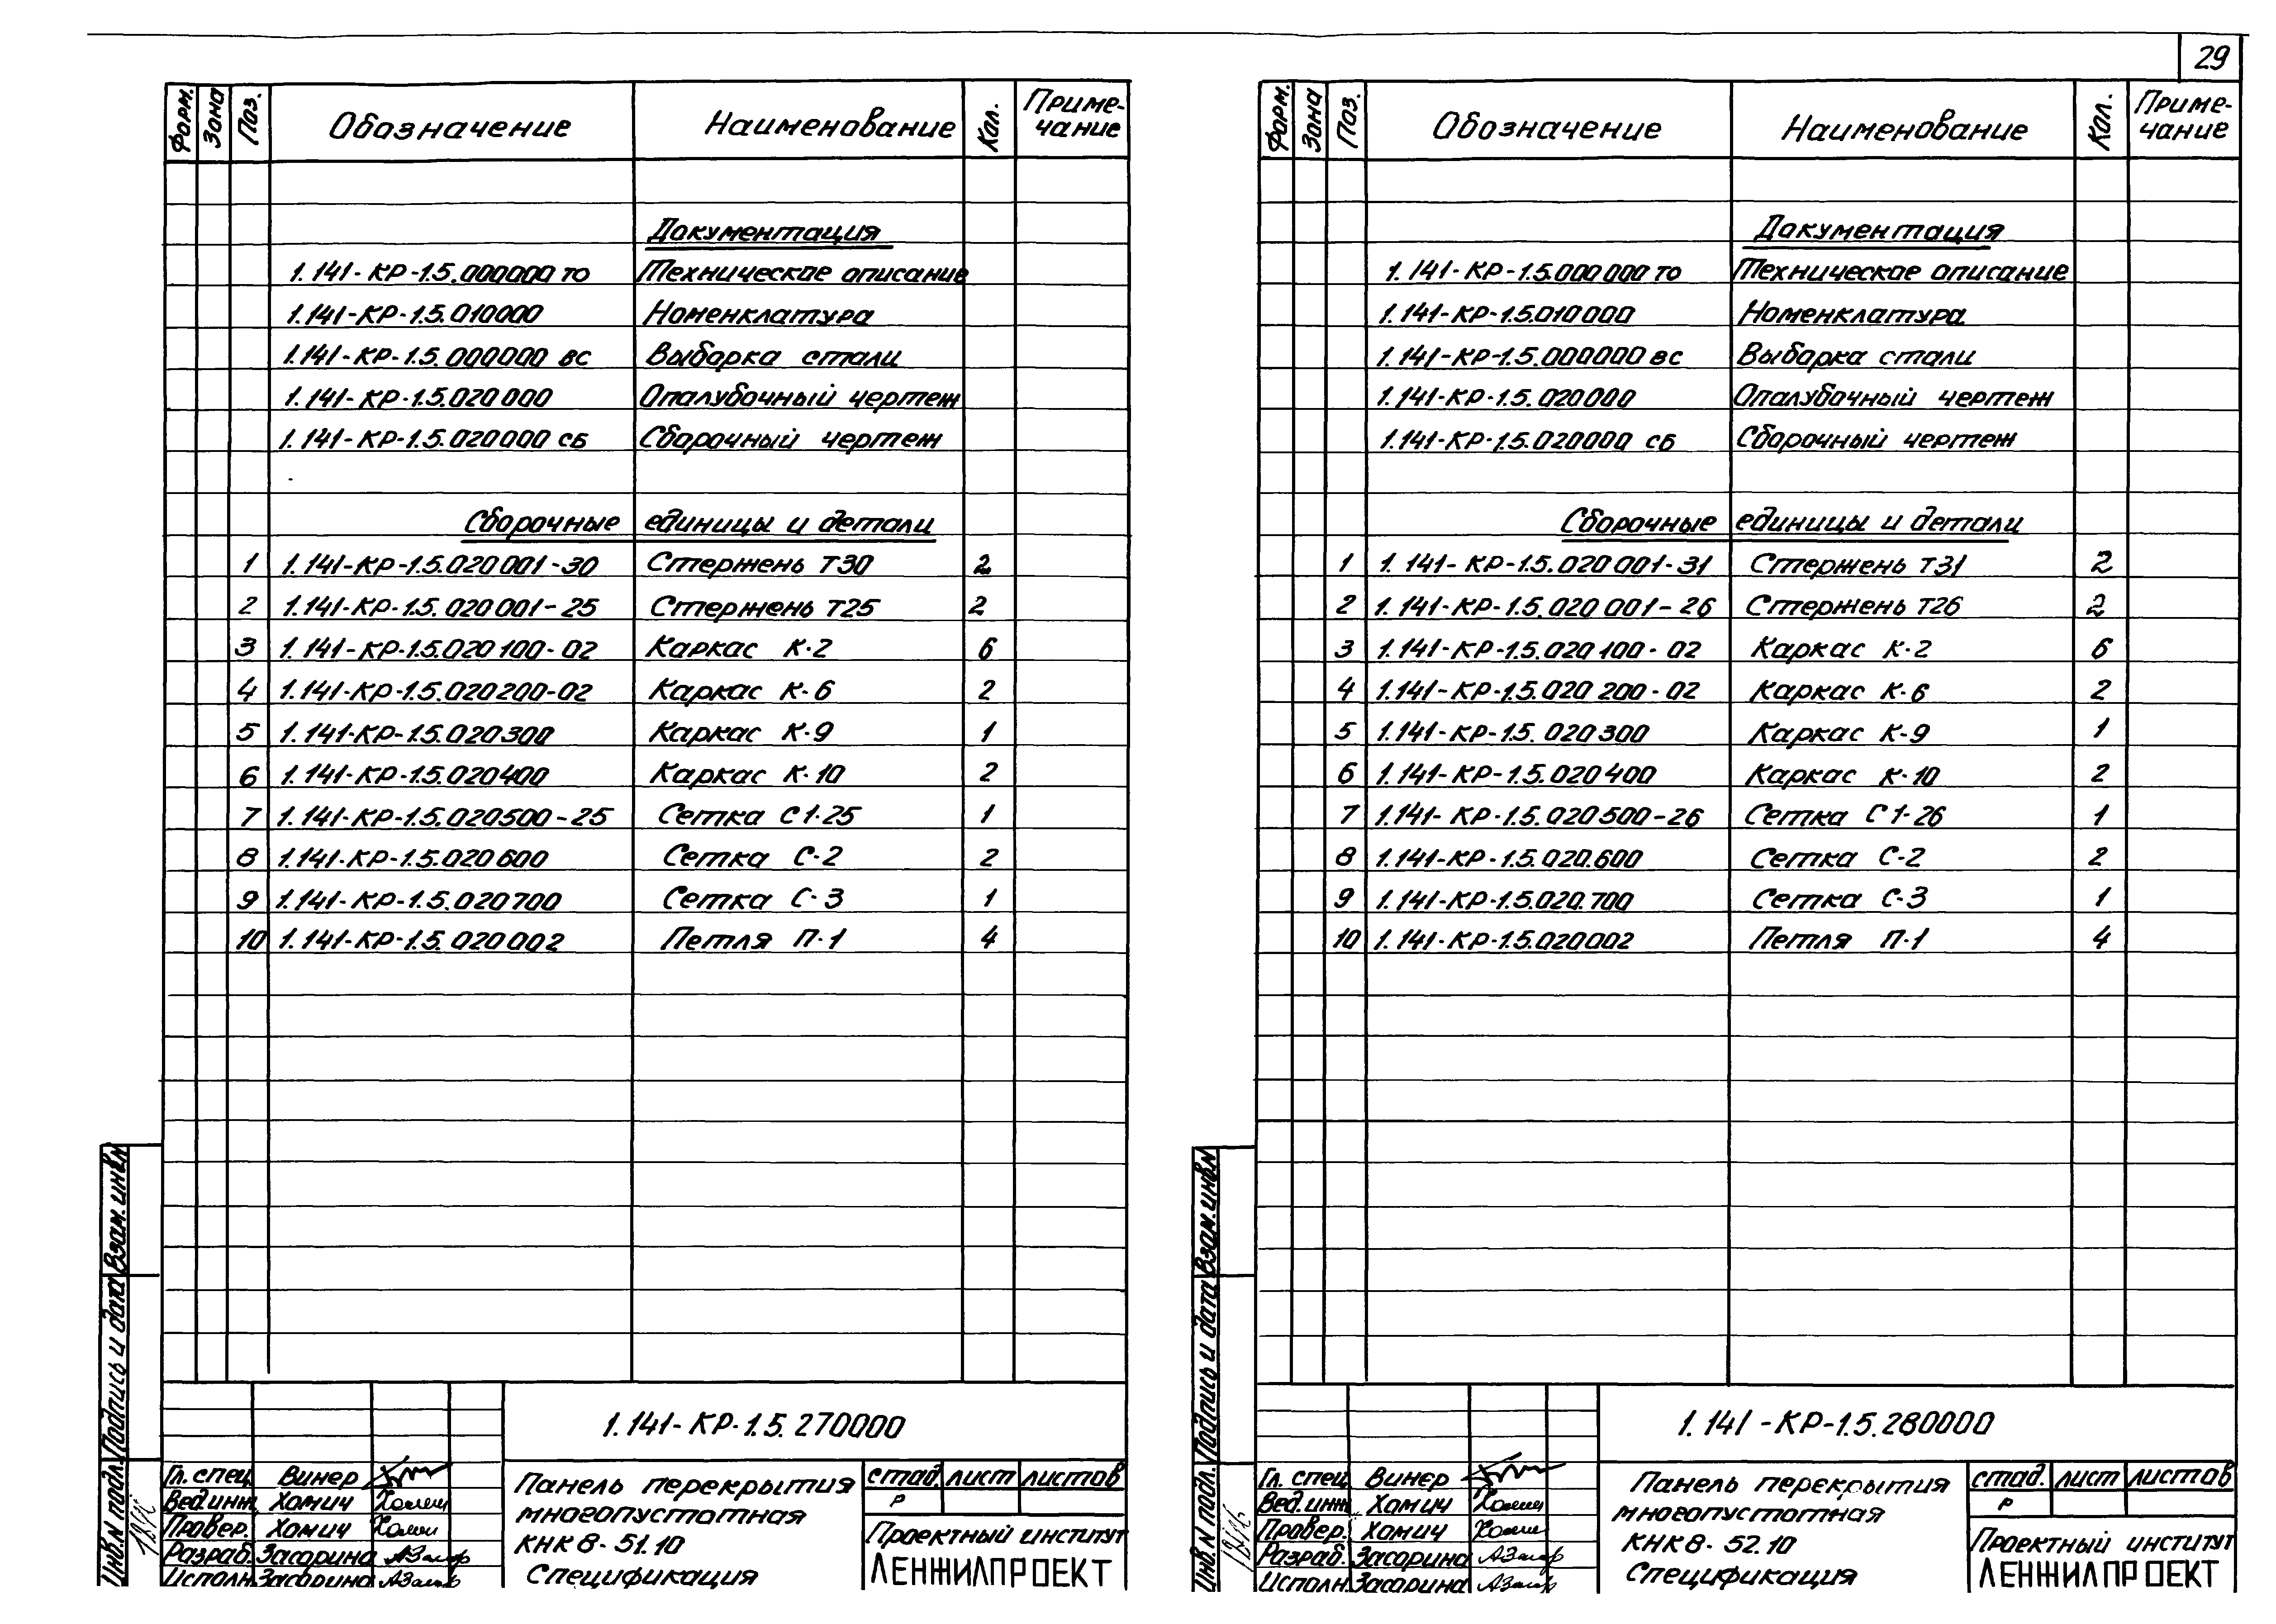 29
Форм. Зона Поз. Обозначение Наименование Кол. Приме-
чание
Документация
1.141-КР-1.5.000000 ТО Техническое описание
1.141-КР-1.5.010000 Номенклатура
1.141-КР-1.5.000000 ВС Выборка стали
1.141-КР-1.5.020000 Опалубочный чертеж
1.141-КР-1.5.020000 СБ Сборочный чертеж
Сборочные единицы и детали
1 1.141-КР-1.5.020001-30 Стержень Т30 2
2 1.141-КР-1.5.020001-25 Стержень Т25 2
3 1.141-КР-1.5.020100-02 Каркас К-2 6
4 1.141-КР-1.5.020200-02 Каркас К-6 2
5 1.141-КР-1.5.020300 Каркас К-9 1
6 1.141-КР-1.5.020400 Каркас К-10 2
7 1.141-КР-1.5.020500-25 Сетка С1-25 1
8 1.141-КР-1.5.020600 Сетка С-2 2
9 1.141-КР-1.5.020700 Сетка С-3 1
10 1.141-КР-1.5.020002 Петля П-1 4
Взам.инв.N
Подпись и дата
Инв.N подл.
1.141-КР-1.5.270000
Гл. спец. Винер
Вед.инж. Хомич
Провер. Хомич
Разраб. Засорина
Исполн. Засорина
Панель перекрытия
многопустотная
КНК8-51.10
Спецификация
стад. лист листов
Р
Проектный институт
ЛЕНЖИЛПРОЕКТ
Форм. Зона Поз. Обозначение Наименование Кол. Приме-
чание
Документация
1.141-КР-1.5.000000 ТО Техническое описание
1.141-КР-1.5.010000 Номенклатура
1.141-КР-1.5.000000 ВС Выборка стали
1.141-КР-1.5.020000 Опалубочный чертеж
1.141-КР-1.5.020000 СБ Сборочный чертеж
Сборочные единицы и детали
1 1.141-КР-1.5.020001-31 Стержень Т31 2
2 1.141-КР-1.5.020001-26 Стержень Т26 2
3 1.141-КР-1.5.020100-02 Каркас К-2 6
4 1.141-КР-1.5.020200-02 Каркас К-6 2
5 1.141-КР-1.5.020300 Каркас К-9 1
6 1.141-КР-1.5.020400 Каркас К-10 2
7 1.141-КР-1.5.020500-26 Сетка С1-26 1
8 1.141-КР-1.5.020.600 Сетка С-2 2
9 1.141-КР-1.5.020.700 Сетка С-3 1
10 1.141-КР-1.5.020002 Петля П-1 4
Взам.инв.N
Подпись и дата
Инв.N подл.
1.141-КР-1.5.280000
Гл. спец. Винер
Вед.инж. Хомич
Провер. Хомич
Разраб. Засорина
Исполн. Засорина
Панель перекрытия
многопустотная
КНК8-52.10
Спецификация
стад. лист листов
Р
Проектный институт
ЛЕНЖИЛПРОЕКТ